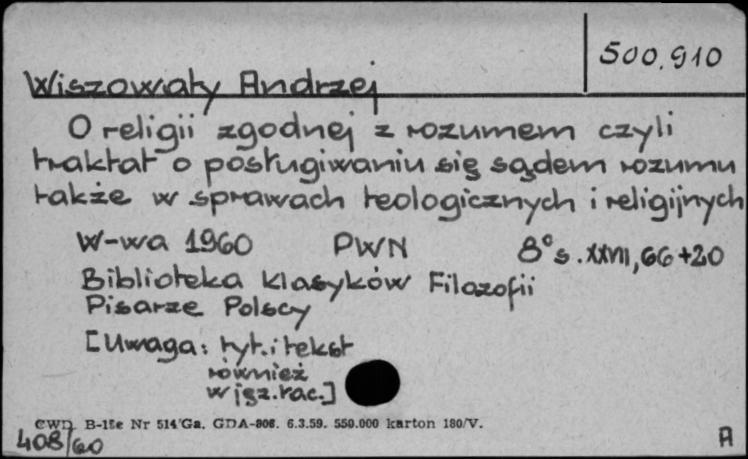 500.910
Wiszowaty Andrzej
O religii zgodnej z rozumem czyli
traktat o posługiwaniu się sądem rozumu
także w sprawach teologicznych i religijnych
W-wa 1960 PWN 8° s. XXVII, 66+20
Biblioteka Klasyków Filozofii
Pisarze Polscy
[Uwaga: tyt. i tekst
również
w jęz. łac.]
CWD. B-15e Nr 514/Ga. GDA-808. 6.3.59. 550.000 karton 180/V.
408/60 A